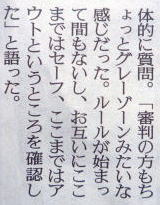 体的に質問。「審判の方もち
ょっとグレーゾーンみたいな
感じだった。ルールが始まっ
て間もないし、お互いにここ
まではセーフ、ここまではア
ウトというところを確認し
た」と語った。